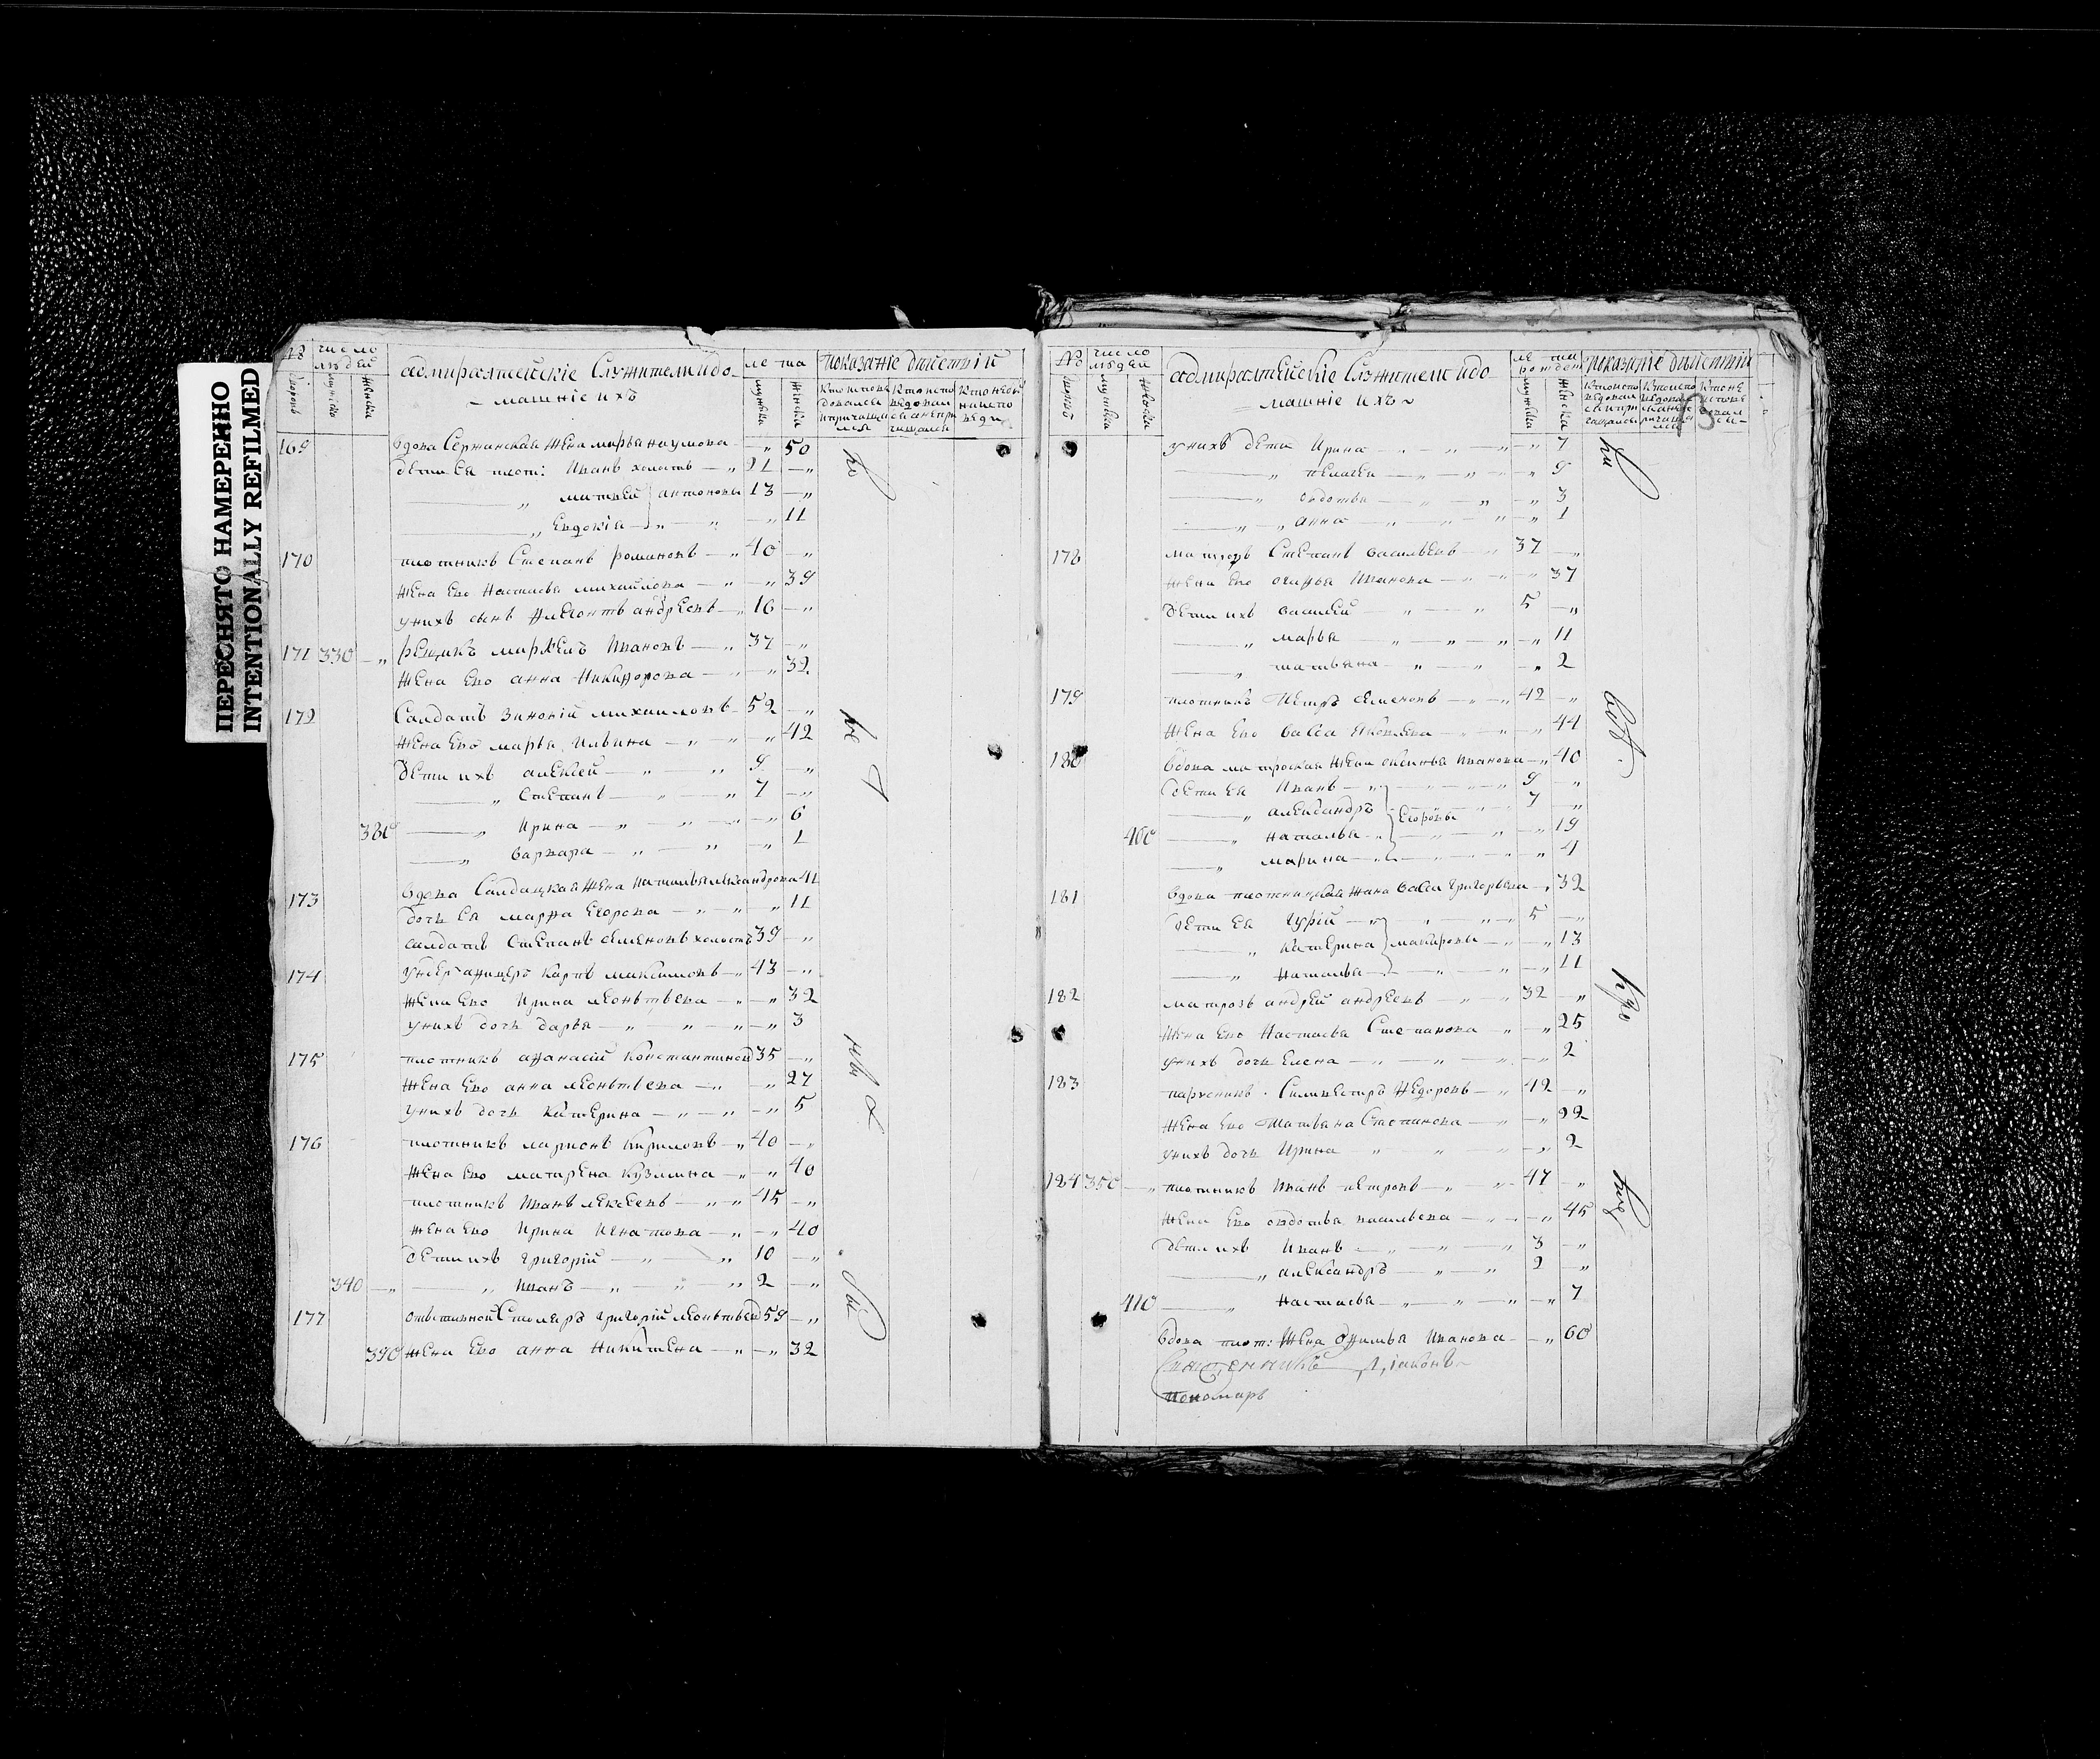 ПЕРЕСНЯТО НАМЕРЕННО
INTENTIONALLY REFILMED
№ число людей
адмиралтейскіе Служители и до-
машніе ихъ
ле та
показаніе
169 вдова Сержанская жена марья наумова 50
дети Ея плот: Иванъ холостъ 21
матвей антоновы 13
Евдокія 11
170 плотникъ Степанъ романовъ 40
жена Ево Настасья михайлова 39
у нихъ сынъ андреевъ 16
171 330 Ивановъ 37
жена Ево анна Никифорова 32
172 Салдатъ Зиновій михаиловъ 52
жена Ево марья Ильина 42
дети ихъ алексей 9
Степанъ 7
380 Ирина 6
варвара 1
173 вдова Салдацкая жена Наталья александрова 41
дочь Ея марфа Егорова 11
салдатъ Степанъ семеновъ холостъ 39
174 Карпъ максимовъ 43
жена Ево Ирина леонтьева 32
у нихъ дочь дарья 3
175 плотникъ афанасій Константиновъ 35
жена Ево анна леонтьева 27
у нихъ дочь катерина 5
176 плотникъ ларионъ Кириловъ 40
жена Ево матрена Кузмина 40
плотникъ Иванъ алексеевъ 45
жена Ево Ирина Игнатова 40
дети ихъ григорій 10
340 Иванъ 2
177 Столяръ григорій леонтьевъ 59
390 жена Ево анна Никитина 32
№ число людей
адмиралтейскіе Служители и до
машніе ихъ
показаніе
у нихъ дети Ирина 7
пелагея 9
овдотья 3
анна 1
178 матрозъ Степанъ васильевъ 37
жена Ево Иванова 37
дети ихъ василей 5
марья 11
татьяна 2
179 плотникъ Петръ семеновъ 42
жена Ево васса Яковлева 44
180 вдова матроская жена аксинья Иванова 40
дети Ея Иванъ 9
александръ Егоровы 7
400 наталья 19
марина 4
181 вдова плотницкая жена васса григорьева 32
дети Ея гурій 5
катерина макаровы 13
наталья 11
182 матрозъ андрей андреевъ 32
жена Ево Настасья Степанова 25
у нихъ дочь Елена 2
183 парусникъ Силивестръ Федоровъ 42
жена Ево татьяна Степанова 22
у нихъ дочь Ирина 2
184 350 плотникъ Иванъ петровъ 47
жена Ево овдотья васильева 45
дети ихъ Иванъ 3
александръ 2
410 настасья 7
вдова плот: жена Иванова 60
Священникъ Діаконъ
Пономарь